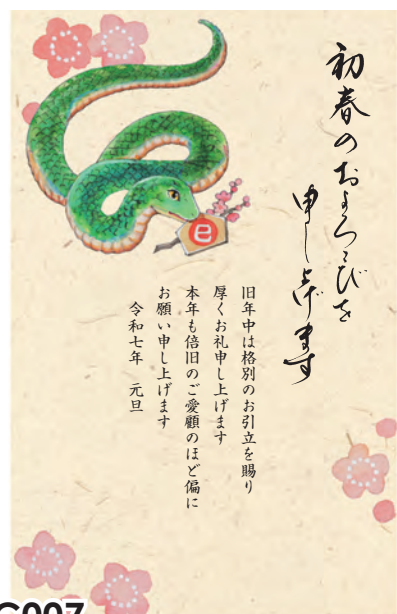 初春のおよろこびを
申し上げます
旧年中は格別のお引立を賜り
厚くお礼申し上げます
本年も倍旧のご愛顧のほど偏に
お願い申し上げます
令和七年 元旦
巳
C007